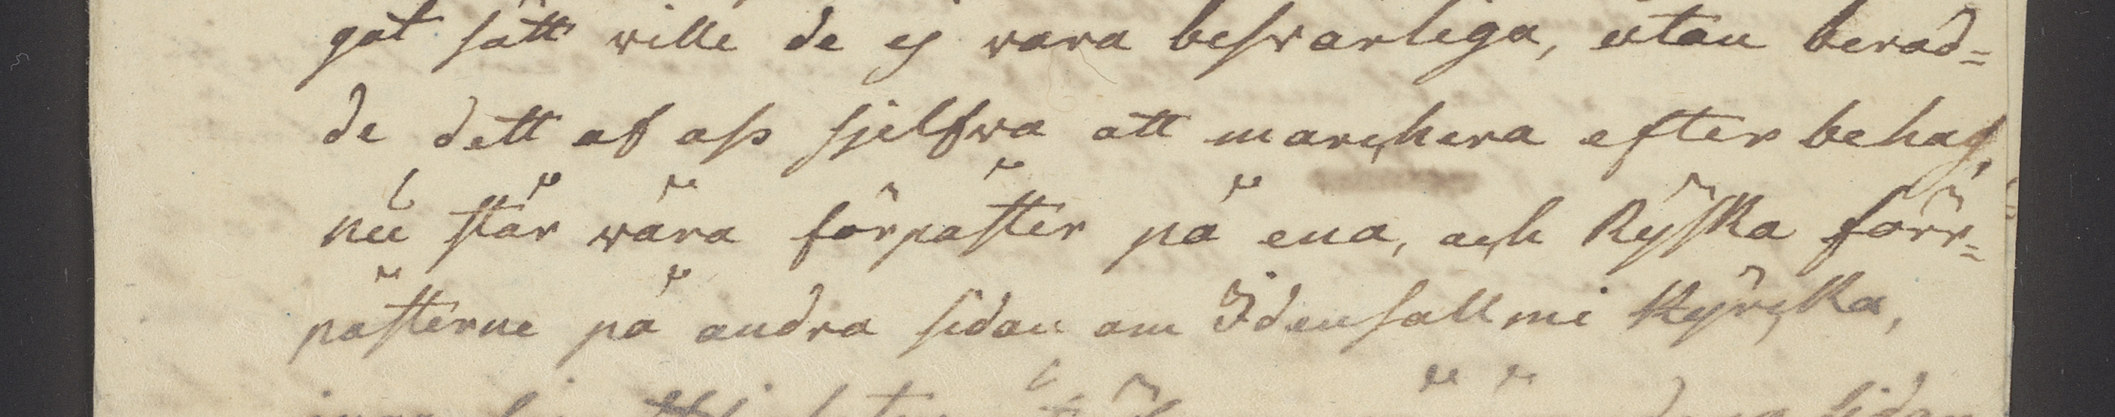 got sätt wille de ej wara beswarliga, utan berod=
de dett af oss sjelfwa att marchera efter behag,
nu står wåra förposter på ena, och Ryska förr=
posterne på andra sidan om Idensallmi Kyrcka,